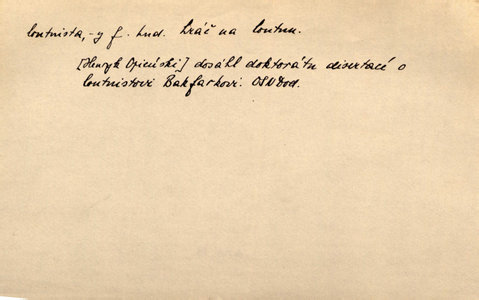 loutnista, -y f. hud. hráč na loutnu.
[Henryk Opieński] dosáhl doktorátu disertací o
loutnistovi Bakfarkovi. OSNDod.